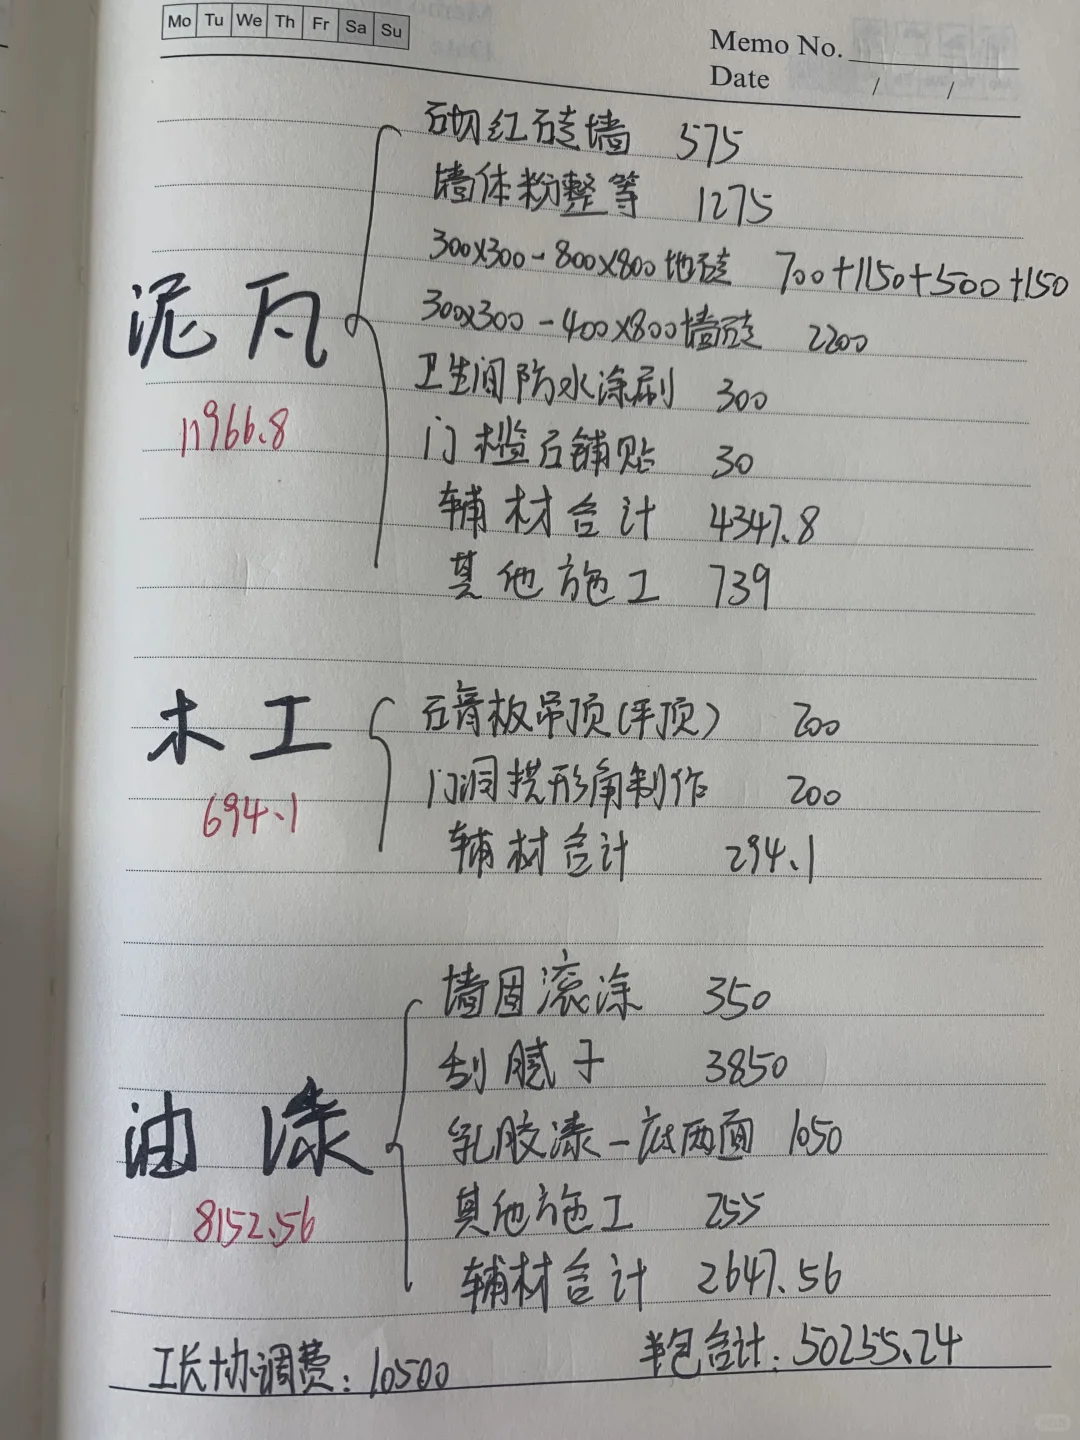 Mo Tu We Th Fr Sa Su
Memo No.
Date / /
砌红砖墙 575
墙体粉整等 1275
300x300-800x800地砖 700+1150+500+150
300x300-400x800墙砖 2200
泥瓦
卫生间防水涂刷 300
11966.8
门槛石铺贴 30
辅材合计 4347.8
其他施工 739
石膏板吊顶(平顶) 200
木工
门洞拱形角制作 200
694.1
辅材合计 294.1
墙固滚涂 350
刮腻子 3850
油漆
乳胶漆一底两面 1050
8152.56
其他施工 255
辅材合计 2647.56
工长协调费:10500
半包合计:50255.24